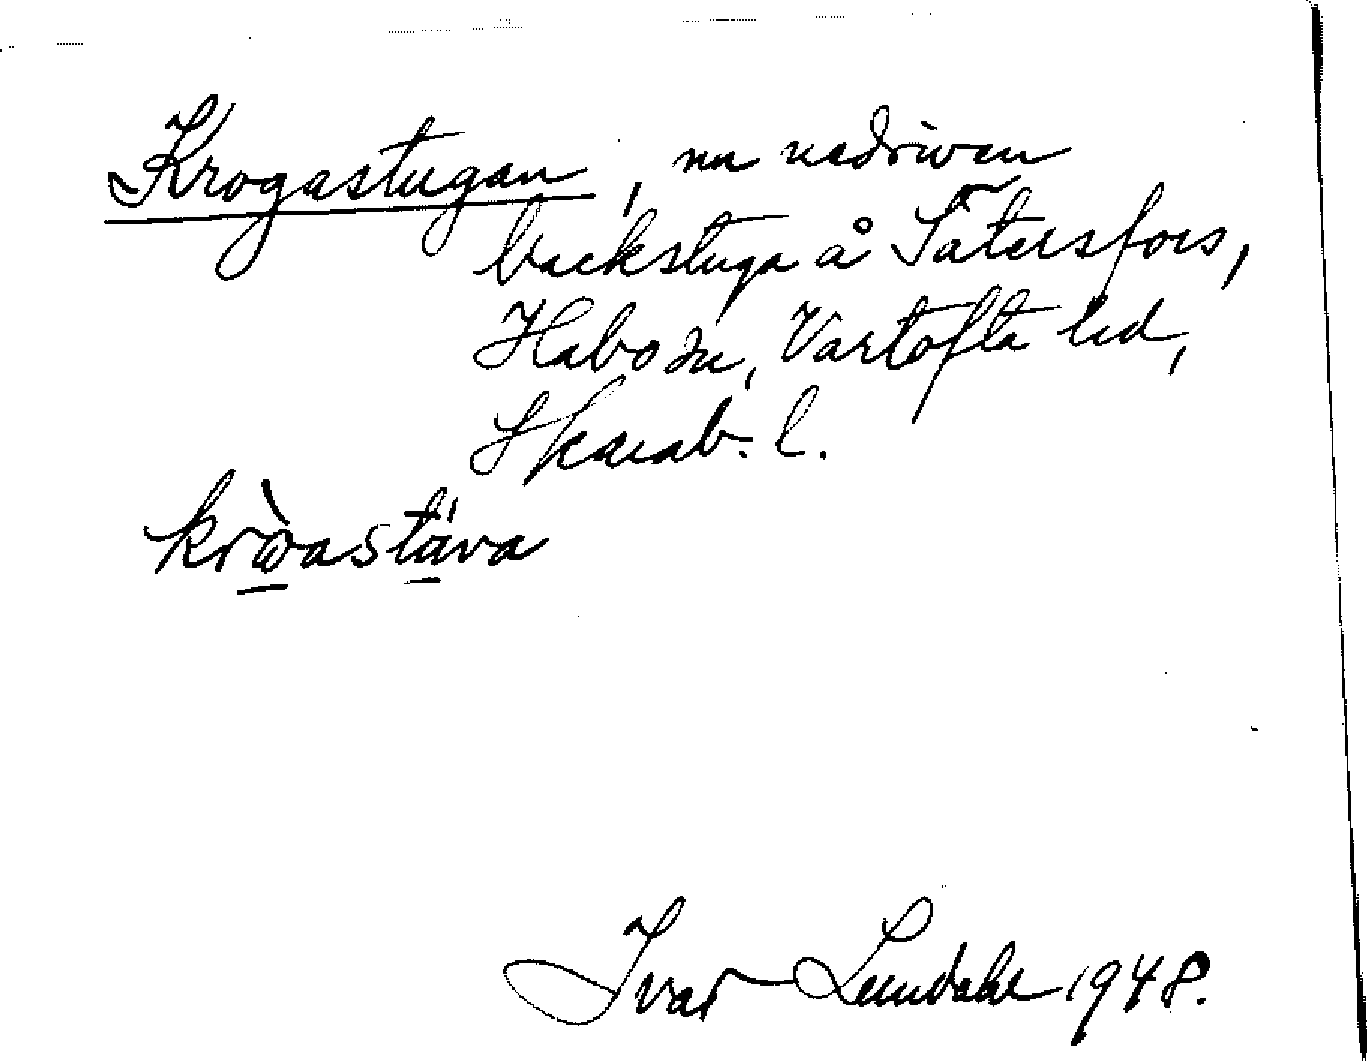 Krogastugan, nu nedriven
backstuga å Sätersfors,
Habo sn, Vartofta hd,
Skarab. l.
kròastáva
Ivar Lundahl 1948.